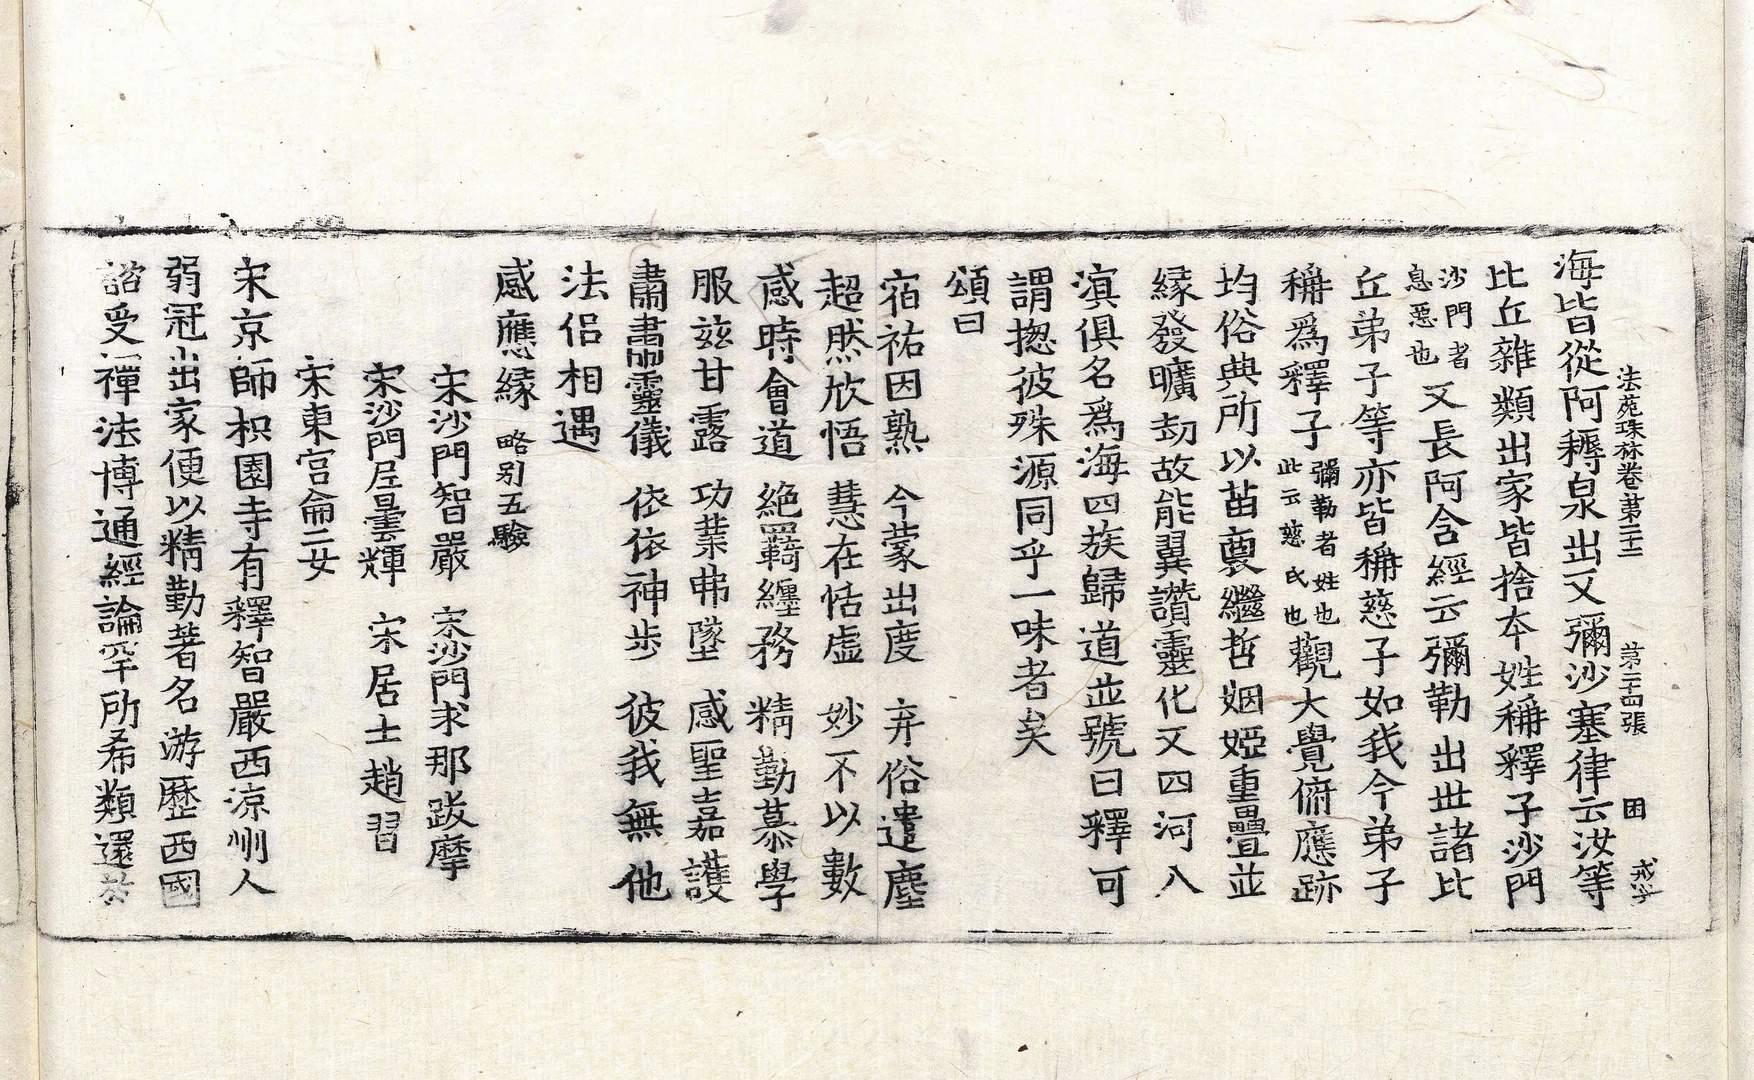 法苑珠林卷第二十二 第二十四張 因 戒字
海皆從阿耨泉出又彌沙塞律云汝等
比丘雜類出家皆捨本姓稱釋子沙門
沙門者息惡也又長阿含經云彌勒出世諸比
丘弟子等亦皆稱慈子如我今弟子
稱爲釋子彌勒者姓也此云慈氏也觀大覺俯應跡
均俗典所以苗裔繼哲姻婭重疊並
緣發曠劫故能翼讚靈化又四河入
滇俱名爲海四族歸道並號曰釋可
謂揔彼殊源同乎一味者矣
頌曰
宿祐因熟 今蒙出度 弃俗遣塵
超然欣悟 慧在恬虛 妙不以數
感時會道 絕羈纏務 精勤慕學
服兹甘露 功業弗墜 感聖嘉護
肅肅靈儀 依依神步 彼我無他
法侶相遇
感應緣 略别五驗
宋沙門智嚴 宋沙門求那跋摩
宋沙門尼曇輝 宋居士趙習
宋東宫侖二女
宋京師枳園寺有釋智嚴西涼州人
弱冠出家便以精勤著名游歷西國
諮受禪法博通經論罕所希類還於